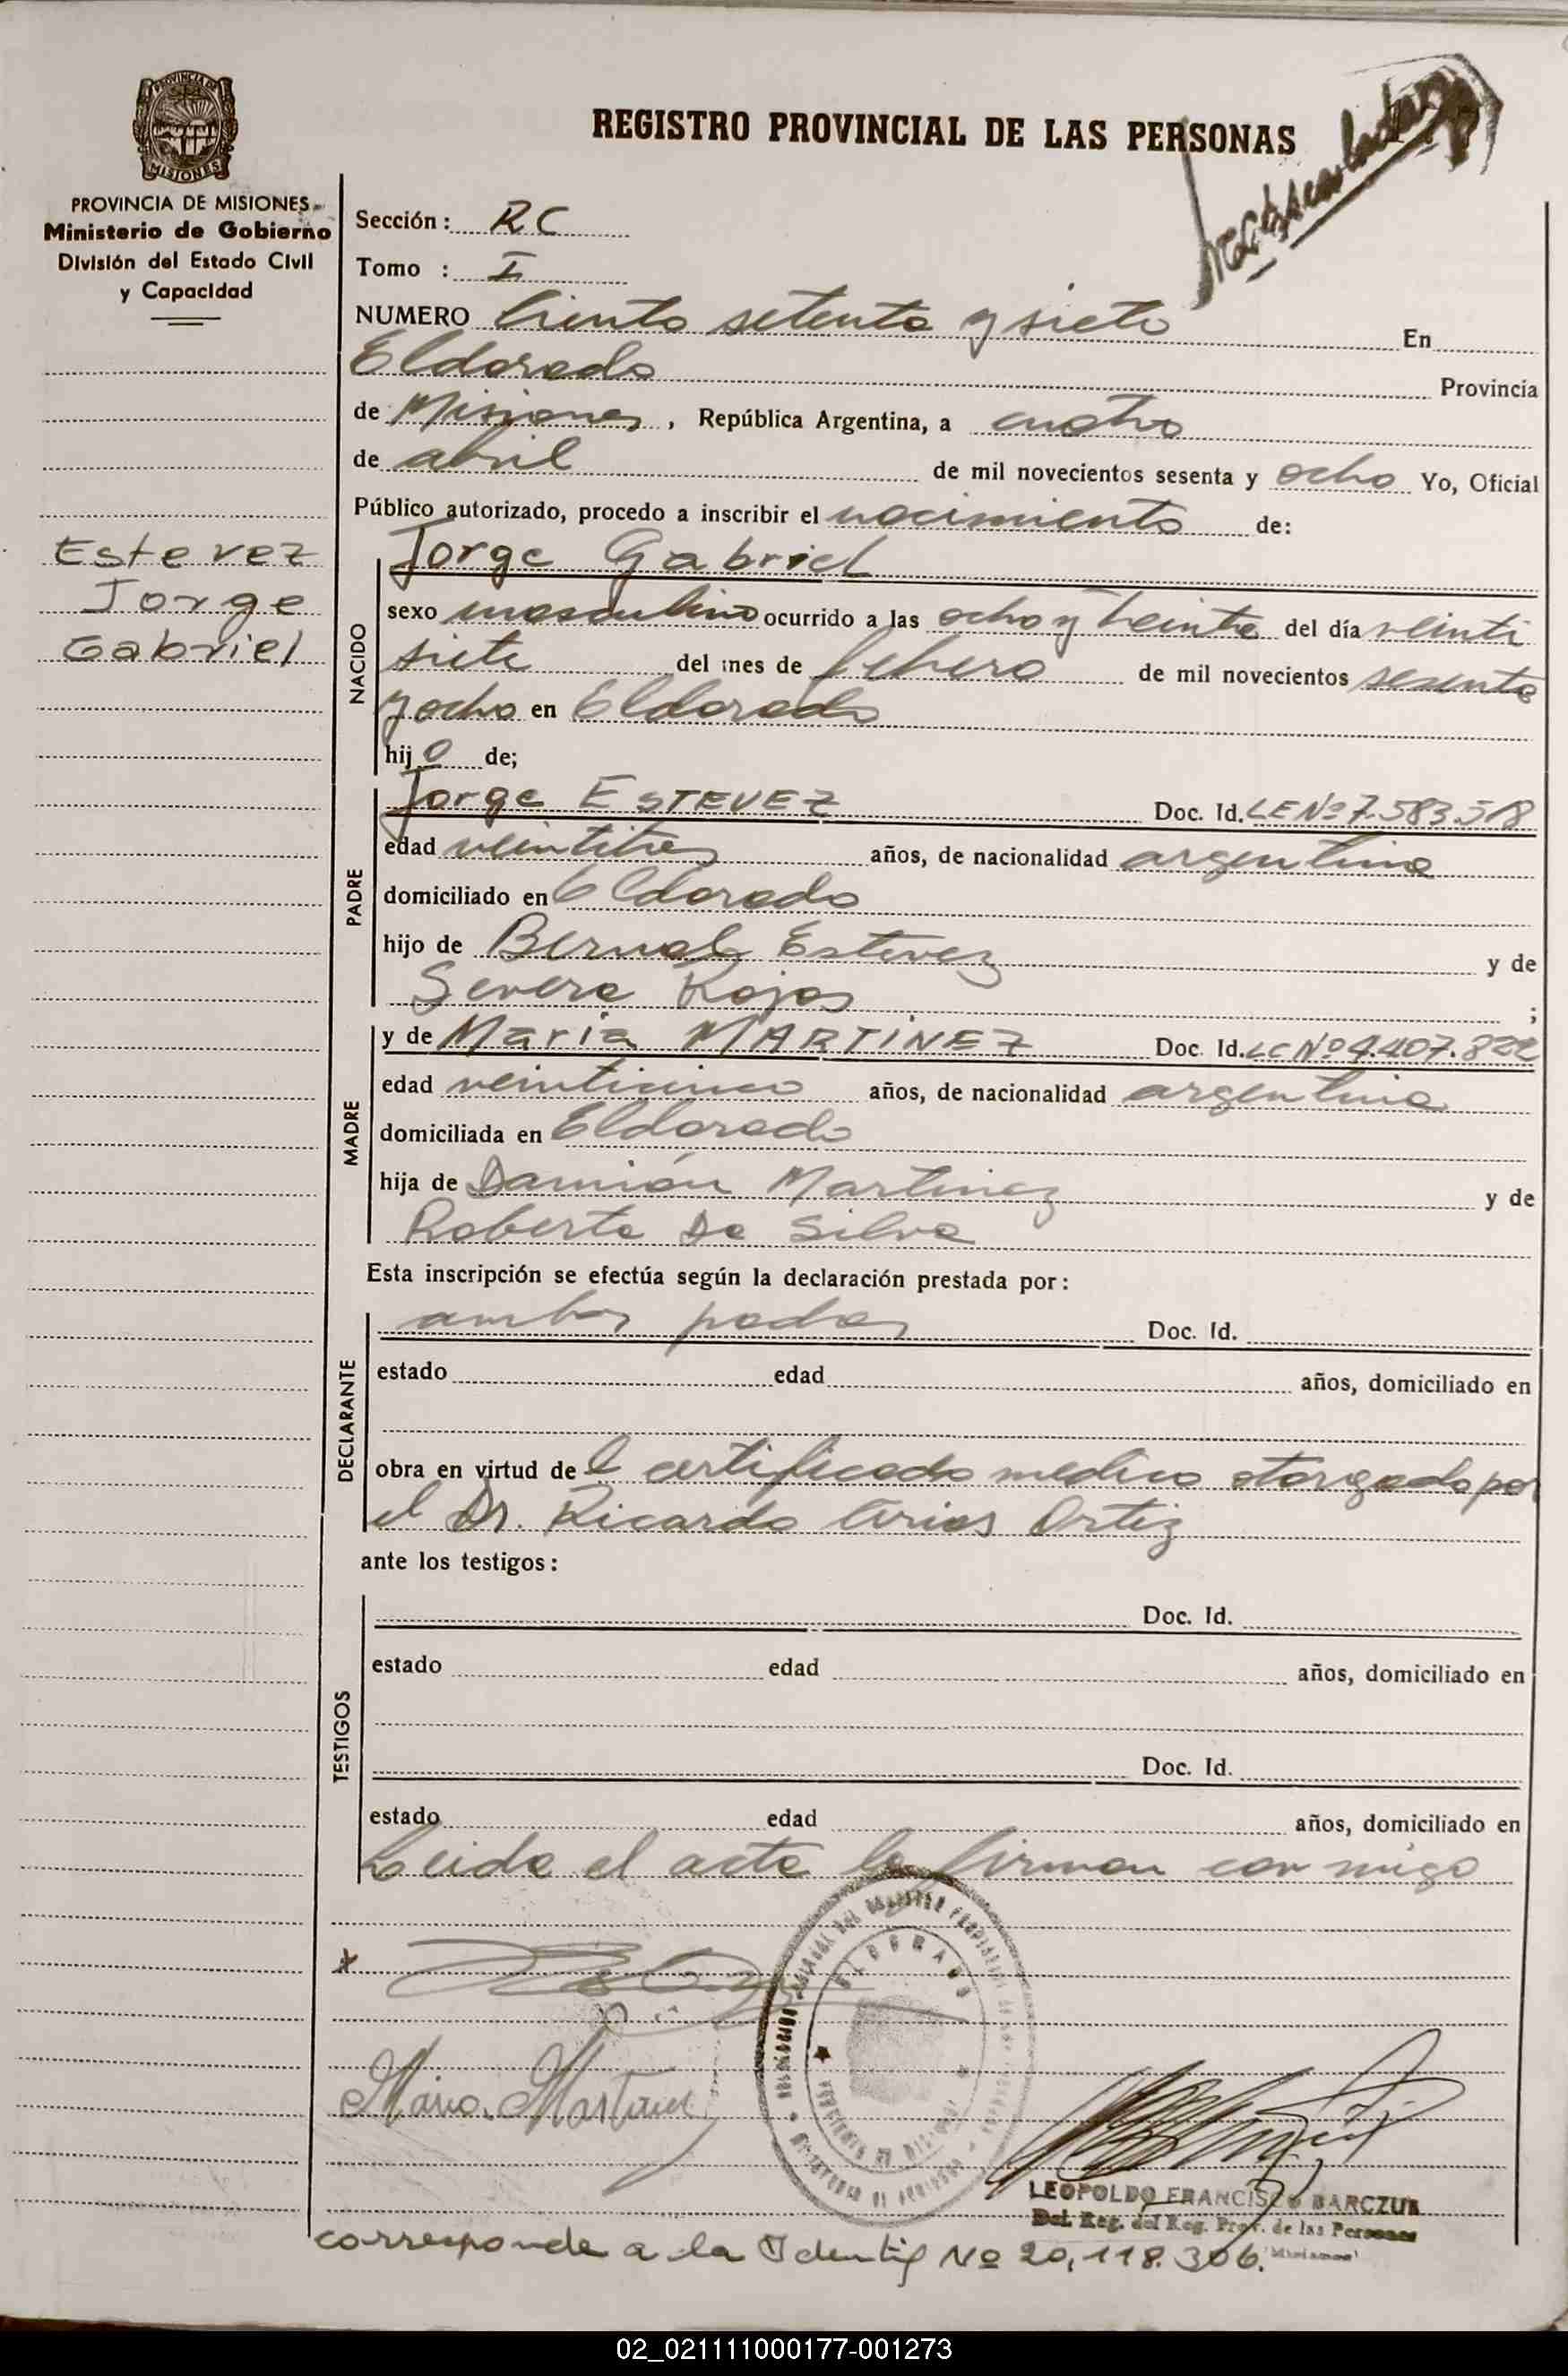 PROVINCIA DE MISIONES
Ministerio de Gobierno
División del Estado Civil
y Capacidad
REGISTRO PROVINCIAL DE LAS PERSONAS
Sección: RC
Tomo : I
NUMERO Ciento setenta y siete En
Eldorado Provincia
de Misiones, República Argentina, a cuatro
de abril de mil novecientos sesenta y ocho Yo, Oficial
Público autorizado, procedo a inscribir el nacimiento de:
Estevez
Jorge
Gabriel
NACIDO
Jorge Gabriel
sexo masculino ocurrido a las ocho y treinta del día veinti
siete del mes de febrero de mil novecientos sesenta
y ocho en Eldorado
hijo de;
PADRE
Jorge ESTEVEZ Doc. Id. LE Nº 7.583.518
edad veintitres años, de nacionalidad argentina
domiciliado en Eldorado
hijo de Bernabe Estevez y de
Severa Rojas ;
MADRE
y de Maria MARTINEZ Doc. Id. LC Nº 4.407.822
edad veinticinco años, de nacionalidad argentina
domiciliada en Eldorado
hija de Damián Martinez y de
Roberta Da Silva
Esta inscripción se efectúa según la declaración prestada por:
DECLARANTE
ambos padres Doc. Id.
estado edad años, domiciliado en
obra en virtud del certificado medico otorgado por
el Dr. Ricardo Arias Ortiz
ante los testigos:
TESTIGOS
Doc. Id.
estado edad años, domiciliado en
Doc. Id.
estado edad años, domiciliado en
Leida el acta la firman conmigo
ELDORADO
Maria Martinez
LEOPOLDO FRANCISCO BARCZUK
Del. Reg. del Reg. Prov. de las Personas
corresponde a la Identif Nº 20,118.306.
02_021111000177-001273